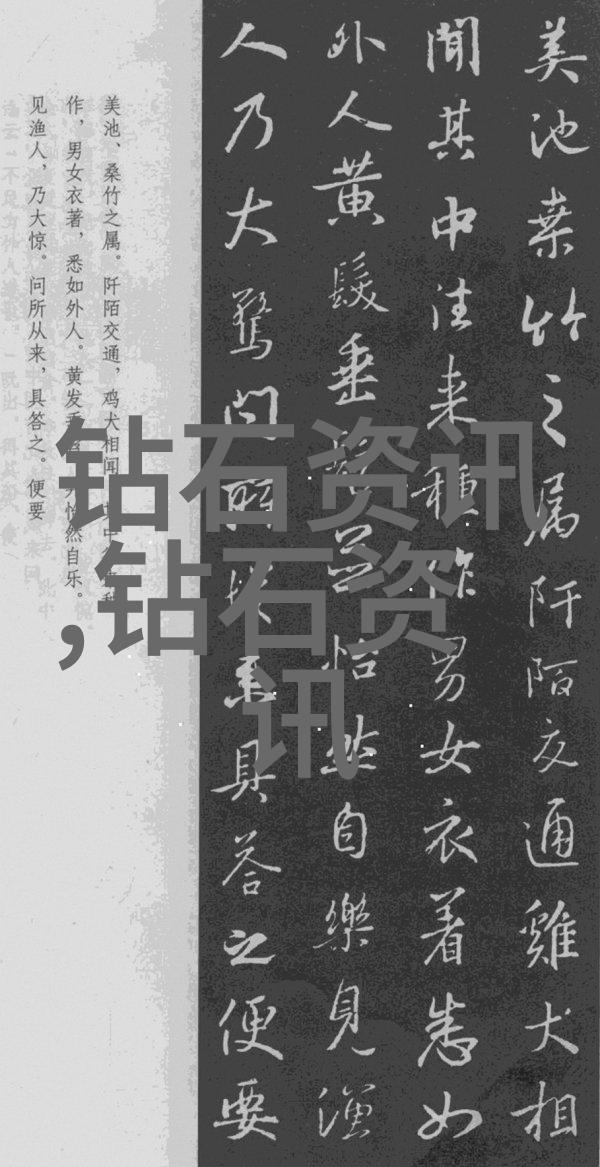 美池桒竹之属阡陌交通雞犬相
聞其中往来種作男女衣着悉如
外人黄髮垂髫並怡然自樂見漁
人乃大驚問所從来具答之便要
美池、桑竹之属。阡陌交通，鸡犬相闻。其中往来种
作，男女衣著，悉如外人。黄发垂髫，并怡然自乐。
见渔人，乃大惊。问所从来，具答之。便要
钻石资讯
,钻石资
讯